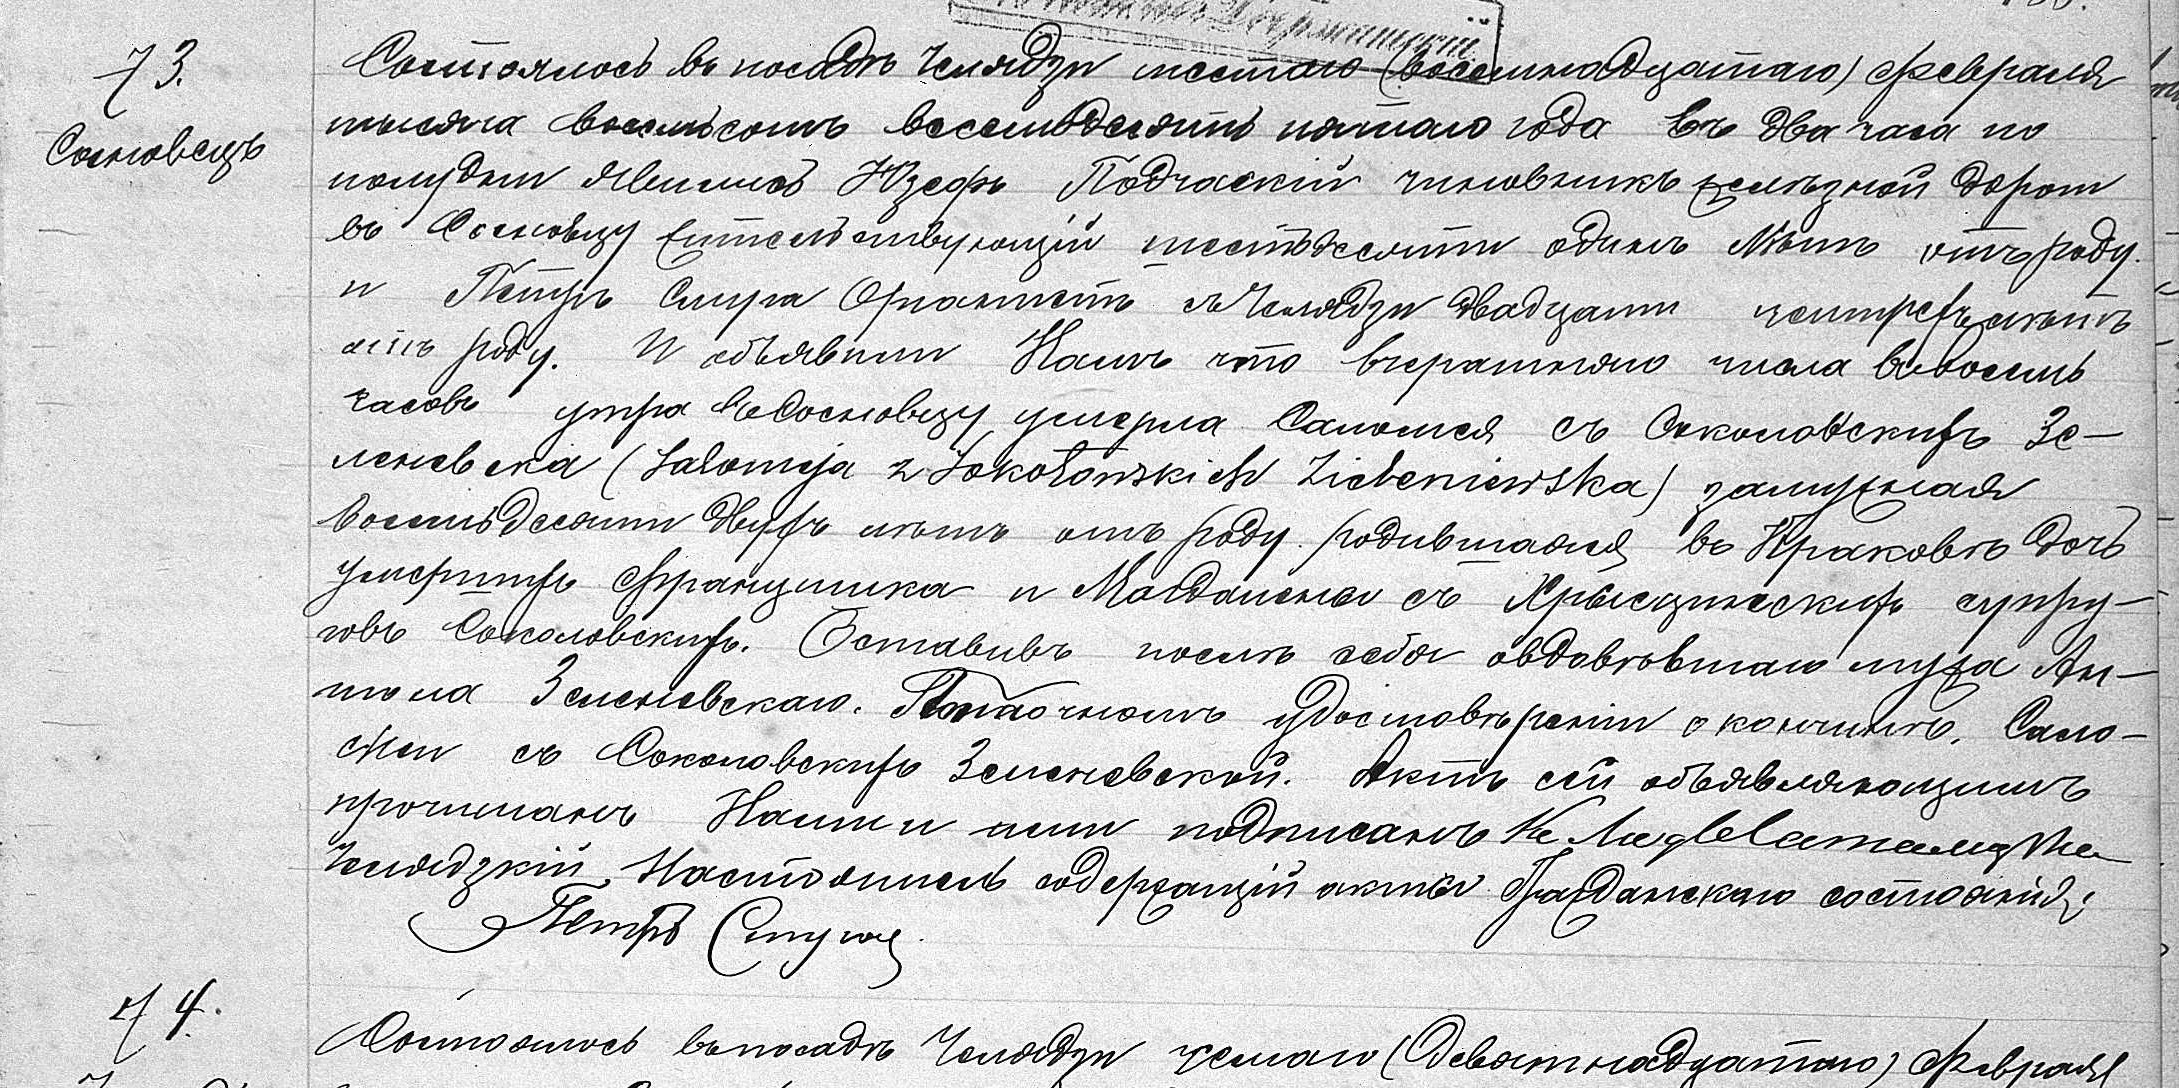 73.
Сосновецъ
Состоялось въ посадѣ Челядзи шестаго (восемнадцатаго) февраля
тысяча восемьсотъ восемьдесятъ пятаго года въ два часа по
полудни явились Юзефъ Подчаскій чиновникъ желѣзной дороги
въ Сосновцу жительствующій шестьдесяти одинъ лѣтъ отъ роду.
и Петръ въ Челядзи двадцати четырехъ лѣтъ
отъ роду. И объявили Намъ что вчерашняго числа въ восемь
часовъ утра въ Сосновцу умерла Саломея съ Соколовскихъ Зе-
леневска (Salomeja z Sokołowskich Zieleniewska) замужная
восемьдесяти двухъ лѣтъ отъ роду. родившаяся въ Краковѣ дочь
умершихъ Францишка и Магдалены съ супру-
говъ Соколовскихъ. Оставивъ послѣ себя овдовѣвшаго мужа Ан-
тона Зеленевскаго. По удостовѣреніи о кончинѣ. Сало-
меи съ Соколовскихъ Зеленевской. Актъ сей объявляющимъ
прочитанъ Нами и ими подписанъ Кс
Челядзкій Настоятель содержащій акты Гражданскаго состоянія:
Петръ
74.
Состоялось въ посадѣ Челядзи седмаго (Девятнадцатаго) февраля